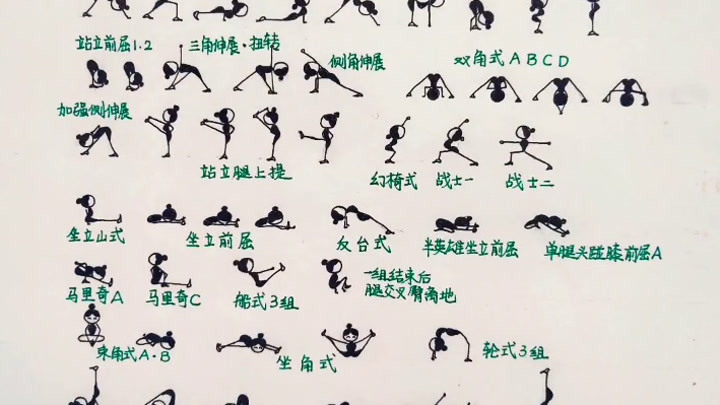 站立前屈1.2 三角伸展·扭转 侧角伸展 双角式 A B C D
加强侧伸展
站立腿上提 幻椅式 战士一 战士二
坐立山式 坐立前屈 反台式 半英雄坐立前屈 单腿头碰膝前屈A
马里奇A 马里奇C 船式3组 一组结束后
腿交叉臀离地
束角式A·B 坐角式 轮式3组